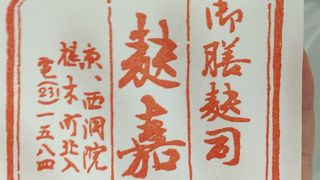 御膳麩司
麩嘉
京、西洞院
椹木町北入
電(231)一五八四